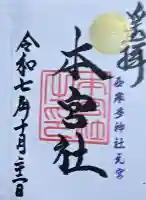 奉拝
西寒多神社元宮
本宮社
令和七年十月